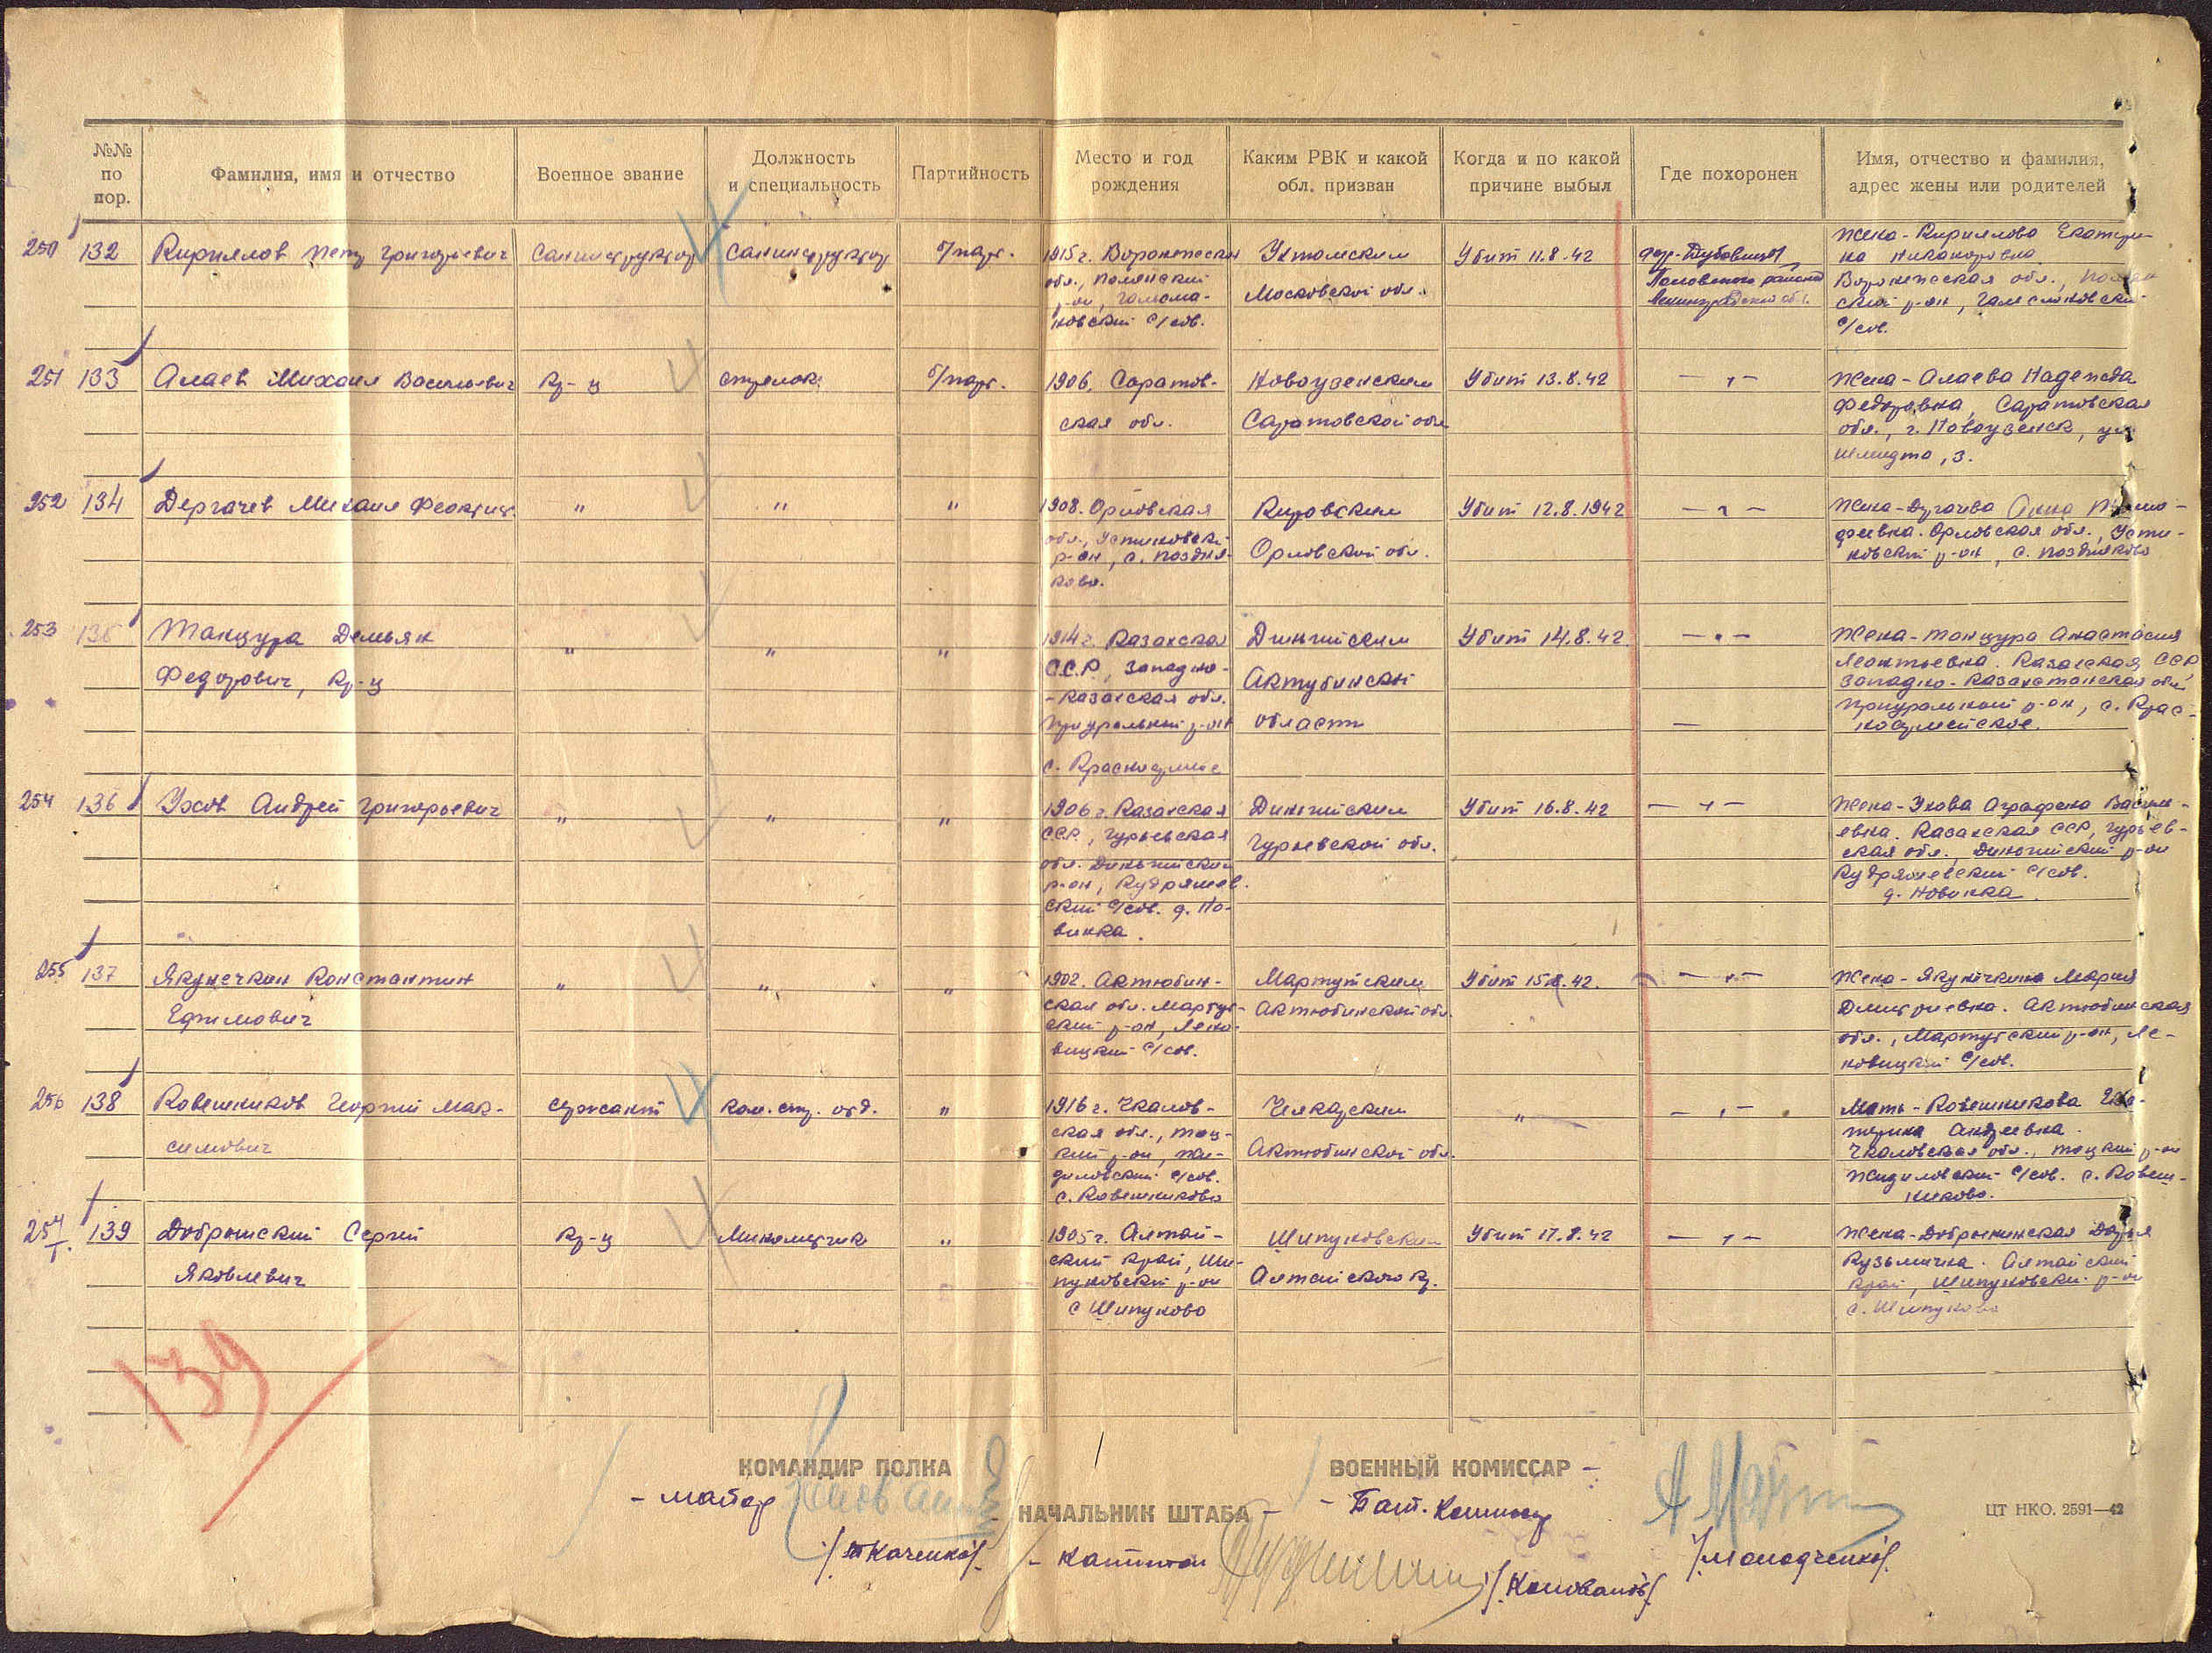 №№ по пор.
Фамилия, имя и отчество
Военное звание
Должность и специальность
Партийность
Место и год рождения
Каким РВК и какой обл. призван
Когда и по какой причине выбыл
Где похоронен
Имя, отчество и фамилия, адрес жены или родителей
250 132
Кириллов Петр Григорьевич
Санинструктор
Санинструктор
б/парт.
1915 г. Воронежская
обл.,
р-он,
с/сов.
Ухтомским
Московской обл.
Убит 11.8.42
дер. Дубовицы
района
Ленинградской обл.
Жена - Кириллова Екатери-
на Никаноровна
Воронежская обл.,
ский р-он,
с/сов.
251 133
Алаев Михаил Васильевич
кр-ц
стрелок
б/парт.
1906, Саратов-
ская обл.
Новоузенским
Саратовской обл
Убит 13.8.42
— " —
Жена - Алаева Надежда
Федоровна, Саратовская
обл., г. Новоузенск, ул
Шмидта, 3.
252 134
Дергачев Михаил
"
"
"
1908. Орловская
обл.,
р-он, с. Поздня-
ково.
Кировским
Орловской обл.
Убит 12.8.1942
— " —
Жена - Анна
феевна. Орловская обл.,
р-он, с. Поздняково
253 135
Танцура Демьян
Федорович, кр-ц
"
"
"
1914 г. Казахская
ССР, Западно-
-Казахская обл.
Приуральный р-он
с.
Актубинской
области
Убит 14.8.42
— " —
—
Жена - Танцура Анастасия
Леонтьевна. Казахская ССР,
Западно-Казахстанская обл
р-он, с.
254 136
Ухов Андрей Григорьевич
"
"
"
1906 г. Казахская
ССР, Гурьевская
обл.
р-он, Кудряшев-
ский с/сов. д. Но-
винка.
Гурьевской обл.
Убит 16.8.42
— " —
Жена - Ухова Аграфена Василь-
евна. Казахская ССР, Гурьев-
ская обл., р-он
Кудряшевский с/сов.
д. Новинка.
255 137
Якунечкин Константин
Ефимович
"
"
"
1902. Актюбин-
ская обл. Мартук-
ский р-он,
с/сов.
Мартукским
Актюбинской обл.
Убит 15.8.42.
— " —
Жена - Якунечкина Мария
Дмитриевна. Актюбинская
обл., Мартукский р-он,
с/сов.
256 138
Ковешников Георгий Мак-
симович
сержант
ком. стр. отд.
"
1916 г. Чкалов-
ская обл., Тоц-
кий р-он, Жи-
диловский с/сов.
с. Ковешниково
Челкарским
Актюбинской обл.
"
— " —
Мать - Ковешникова Ека-
терина Андреевна.
Чкаловская обл., Тоцкий р-он
Жидиловский с/сов. с. Ковеш-
никово.
139
Сергей
Яковлевич
кр-ц
Минометчик
"
1905 г. Алтай-
ский край, Ши-
пуновский р-он
с Шипуново
Шипуновским
Алтайского кр.
Убит 17.8.42
— " —
Жена - Дарья
Кузьминична. Алтайский
край, Шипуновский р-он
с. Шипуново
139
КОМАНДИР ПОЛКА
- майор
/Ткаченко/.
НАЧАЛЬНИК ШТАБА -
- капитан
/Коновалов/.
ВОЕННЫЙ КОМИССАР -
- Бат. Комиссар
/Молодченко/.
ЦТ НКО. 2591—42